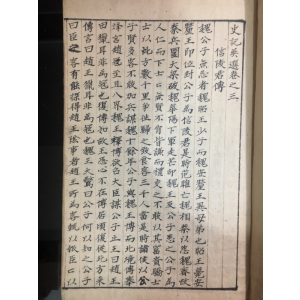 史記英選卷之三
信陵君傳
魏公子無忌者魏昭王少子而魏安釐王異母弟也昭王薨安
釐王卽位封公子爲信陵君是時范雎亡魏相秦以怨魏齊故
秦兵圍大梁破魏華陽下軍走芒卯魏王及公子患之公子爲
人仁而下士士無賢不肖皆謙而禮交之不敢以其富貴驕士
士以此方數千里爭往歸之致食客三千人當是時諸侯以公
子賢多客不敢加兵謀魏十餘年公子與魏王博而北境傳擧
烽言趙寇至且入界魏王釋博欲召大臣謀公子止王曰趙王
田獵耳非爲寇也復博如故王恐心不在博居頃復從北方來
傳言曰趙王獵耳非爲寇也魏王大驚曰公子何以知之公子
曰臣之客有能深得趙王陰事者趙王所爲客輒以報臣臣以